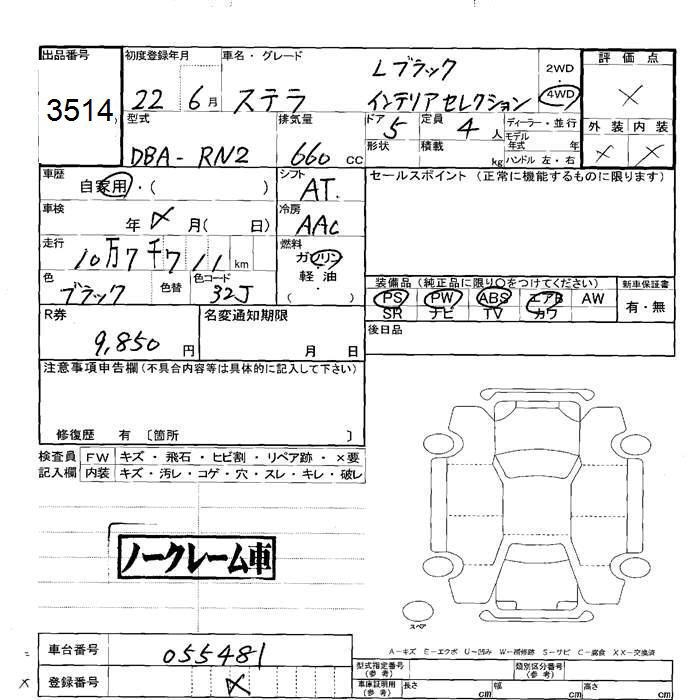 出品番号
3514
初度登録年月
22 6月
車名・グレード
ステラ
Lブラック
インテリアセレクション
2WD
・
4WD
評価点
×
外装 内装
× ×
型式
DBA-RN2
排気量
660 CC
ドア
5
形状
定員
4 人
積載 kg
ディーラー・並行
モデル
年式 年
ハンドル 左・右
車歴
自家用・( )
シフト
AT
車検
年 × 月( 日)
冷房
AAC
走行
10万7千711 km
燃料
ガソリン
・
軽油
( )
色
ブラック
色替
色コード
32J
R券
9,850 円
名変通知期限
月 日
セールスポイント (正常に機能するものに限ります)
装備品 (純正品に限り○をつけてください)
PS PW ABS エアB AW
SR ナビ TV カワ
新車保証書
有・無
後日品
注意事項申告欄 (不具合内容等は具体的に記入して下さい)
修復歴 有 〔箇所 〕
検査員
記入欄
FW キズ・飛石・ヒビ割・リペア跡・×要
内装 キズ・汚レ・コゲ・穴・スレ・キレ・破レ
ノークレーム車
スペア
A−キズ E−エクボ U−凹み W−補修跡 S−サビ C−腐食 XX−交換済
車台番号
055481
登録番号
×
型式指定番号
(参考)
類別区分番号
(参考)
車庫証明用
(参考)
長さ cm
幅 cm
高さ cm